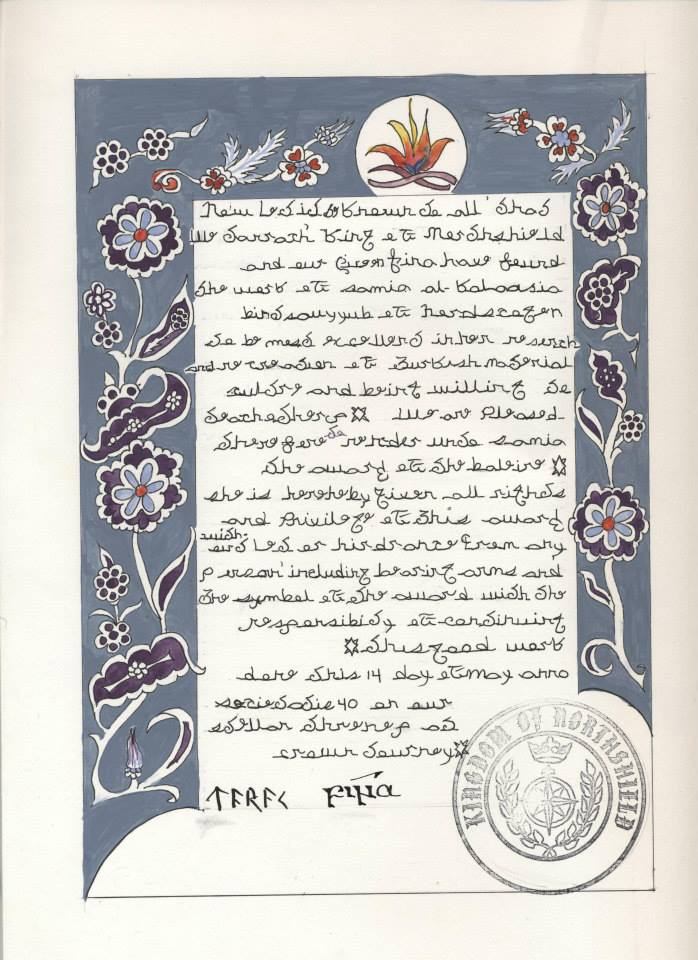 Now Let it be Known to all that
We King of Northshield
and our Queen Fina have found
the work of Samia al-
of Nordskogen
to be most excellent in her reserch
and recreation of Turkish Material
culture and being willing to
teach others We are Pleased
therefore to render unto Samia
the award of the
she is hereby given all rights
and Privilege of This award
without Let or hindrance from any
person including bearing arms and
the symbol of the award with the
of continuing
this good work
done this 14 day of May anno
40 on our
stellar throne at
crown Tourney
KINGDOM OF NORTHSHIELD